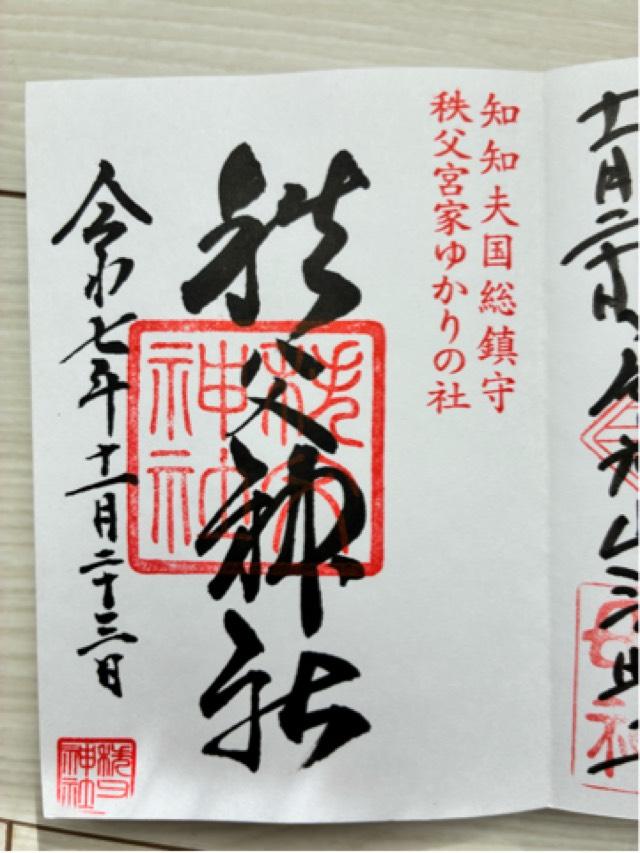 知知夫国総鎮守
秩父宮家ゆかりの社
秩父神社
秩父神社
令和七年十一月二十三日
秩父神社